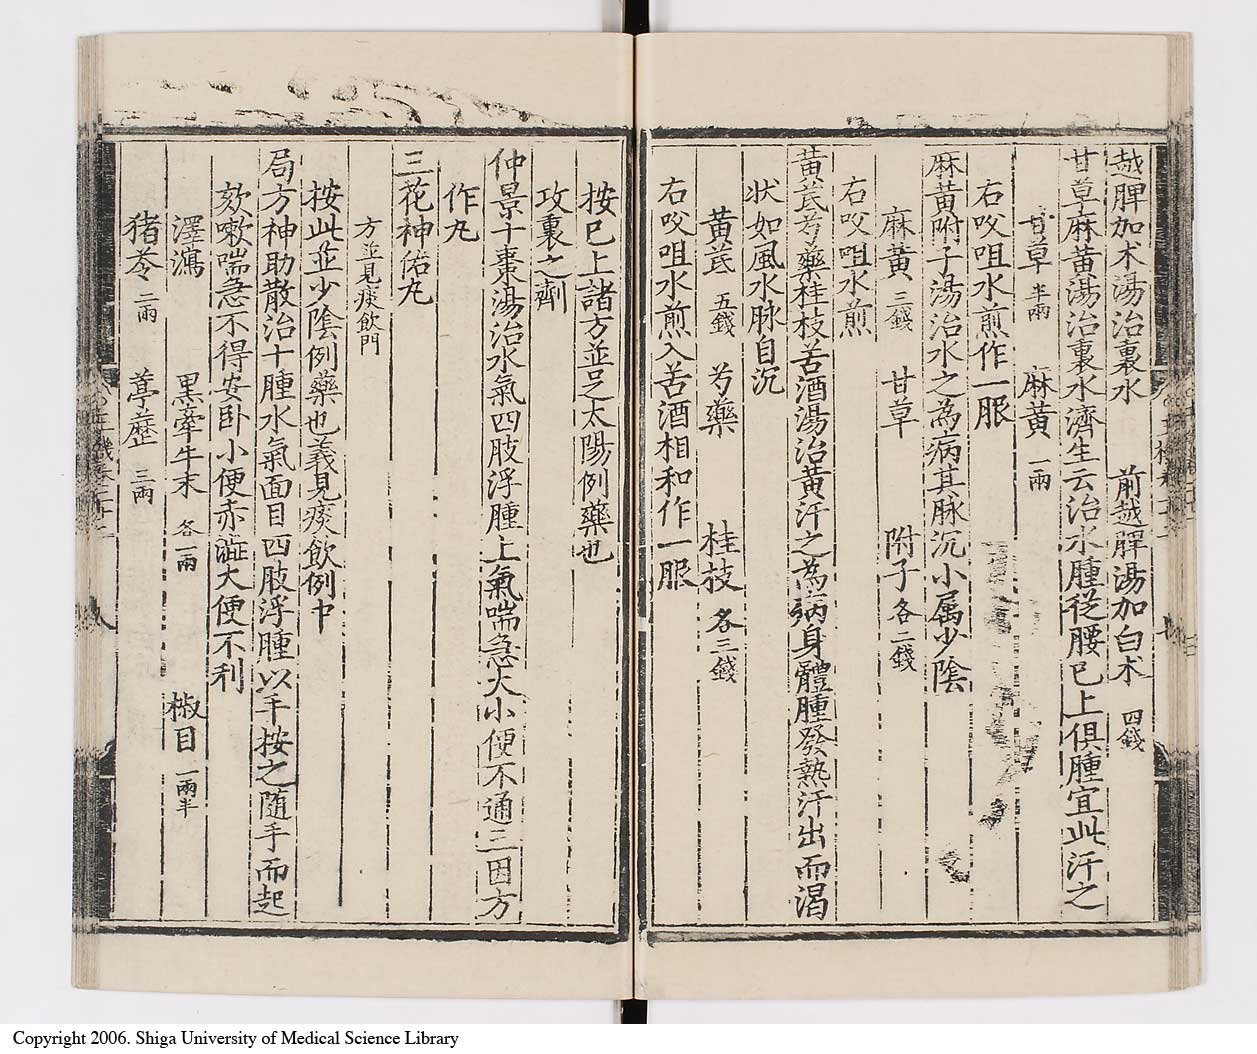 越脾加术湯治裏水　前越脾湯加白术四錢
甘草麻黃湯治裏水濟生云治水腫從腰已上俱腫宜此汗之
甘草半兩　麻黃一兩
右㕮咀水煎作一服
麻黃附子湯治水之為病其脉沉小属少陰
麻黃三錢　甘草　附子各二錢
右㕮咀水煎
黃芪芍藥桂枝苦酒湯治黃汗之為病身體腫發熱汗出而渴
狀如風水脉自沉
黃芪五錢　芍藥　桂枝各三錢
右㕮咀水煎入苦酒相和作一服
按已上諸方並足太陽例藥也
攻裏之劑
仲景十棗湯治水氣四肢浮腫上氣喘急大小便不通三因方
作丸
三花神佑丸
方並見痰飲門
按此並少陰例藥也義見痰飲例中
局方神助散治十腫水氣面目四肢浮腫以手按之随手而起
欬嗽喘急不得安卧小便赤澁大便不利
澤瀉　黑牽牛末各一兩　椒目一兩半
猪苓二兩　葶藶三兩
Copyright 2006. Shiga University of Medical Science Library